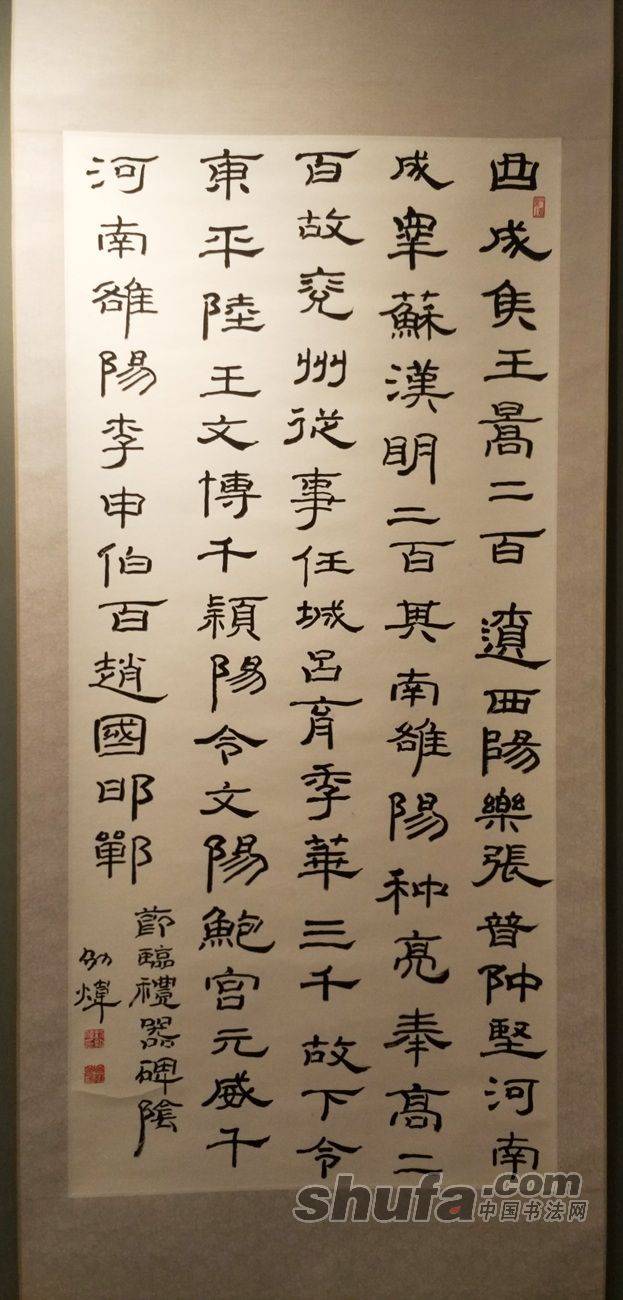 曲成侯王暠二百遼西陽樂張普仲堅河南
成睪蘇漢明二百其南雒陽种亮奉高二
百故兗州從事任城呂育季華三千故下令
東平陸王文博千潁陽令文陽鮑宮元威千
河南雒陽李申伯百趙國邯鄲
節臨禮器碑陰
劭煒
shufa.com
中国书法网